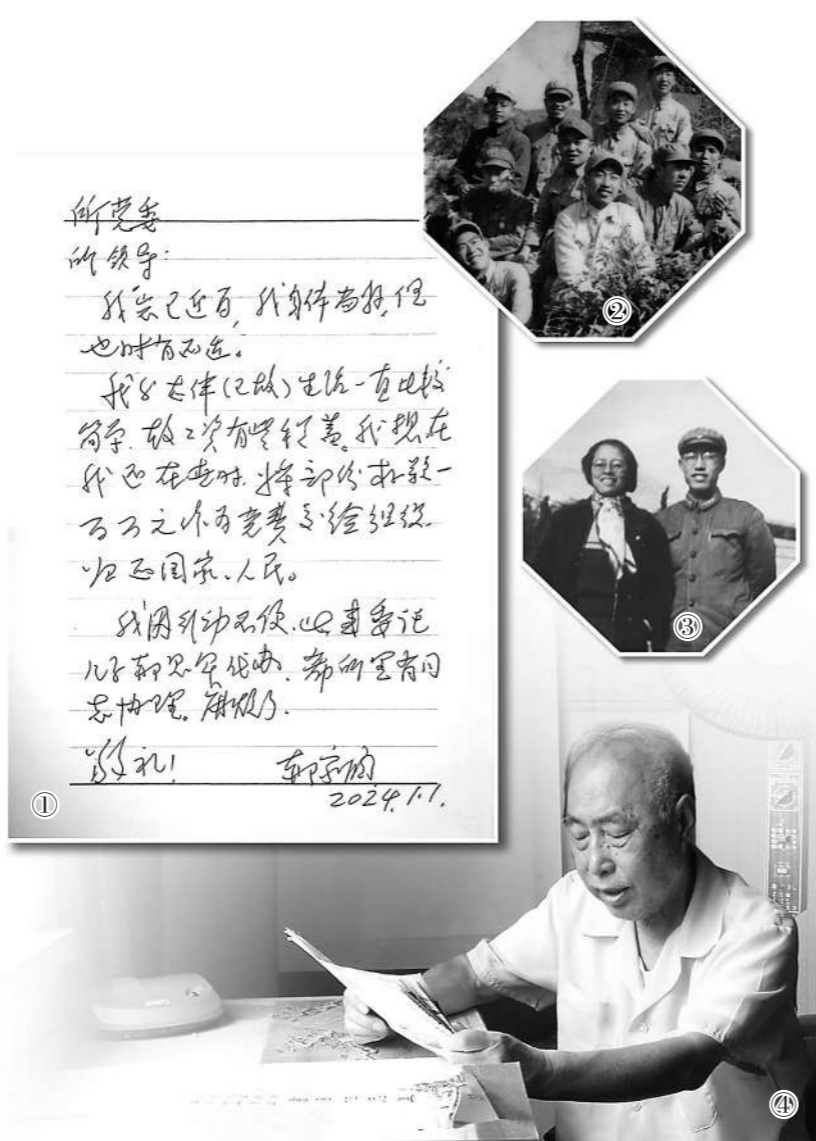 所党委
所领导:
我岁已近百,我身体尚好,但
也时有不适。
我与老伴(已故)生活一直比较
简单,故工资有些积蓄。我想在
我还在世时,将部份存款一
百万元作为党费交给组织,
归还国家、人民。
我因行动不便,此事委托
儿子代办,希所里有同
志协理。麻烦了.
敬礼!
2024.1.1.
①
②
③
④